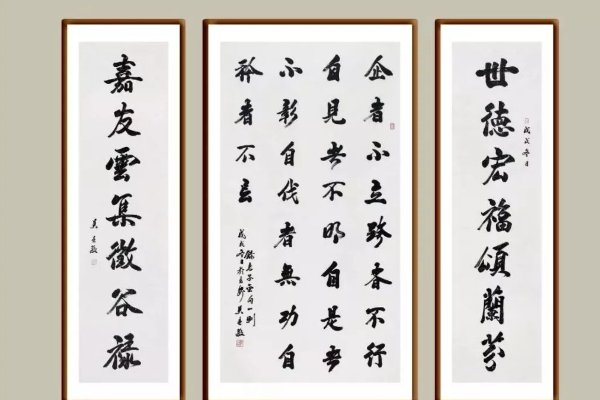 世德宏福頌蘭芬
戊戌冬日
企者不立跨者不行
自見者不明自是者
不彰自伐者無功自
矜者不長
戊戌冬日
嘉友雲集徵谷禄